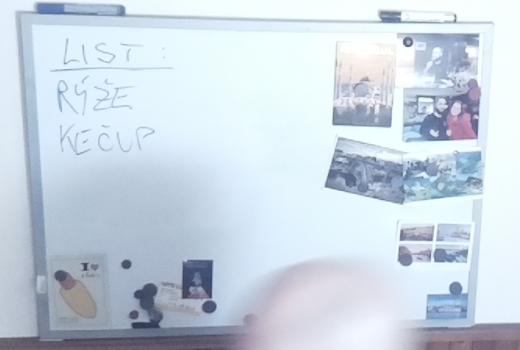 LIST:
RÝŽE
KEČUP
I ❤